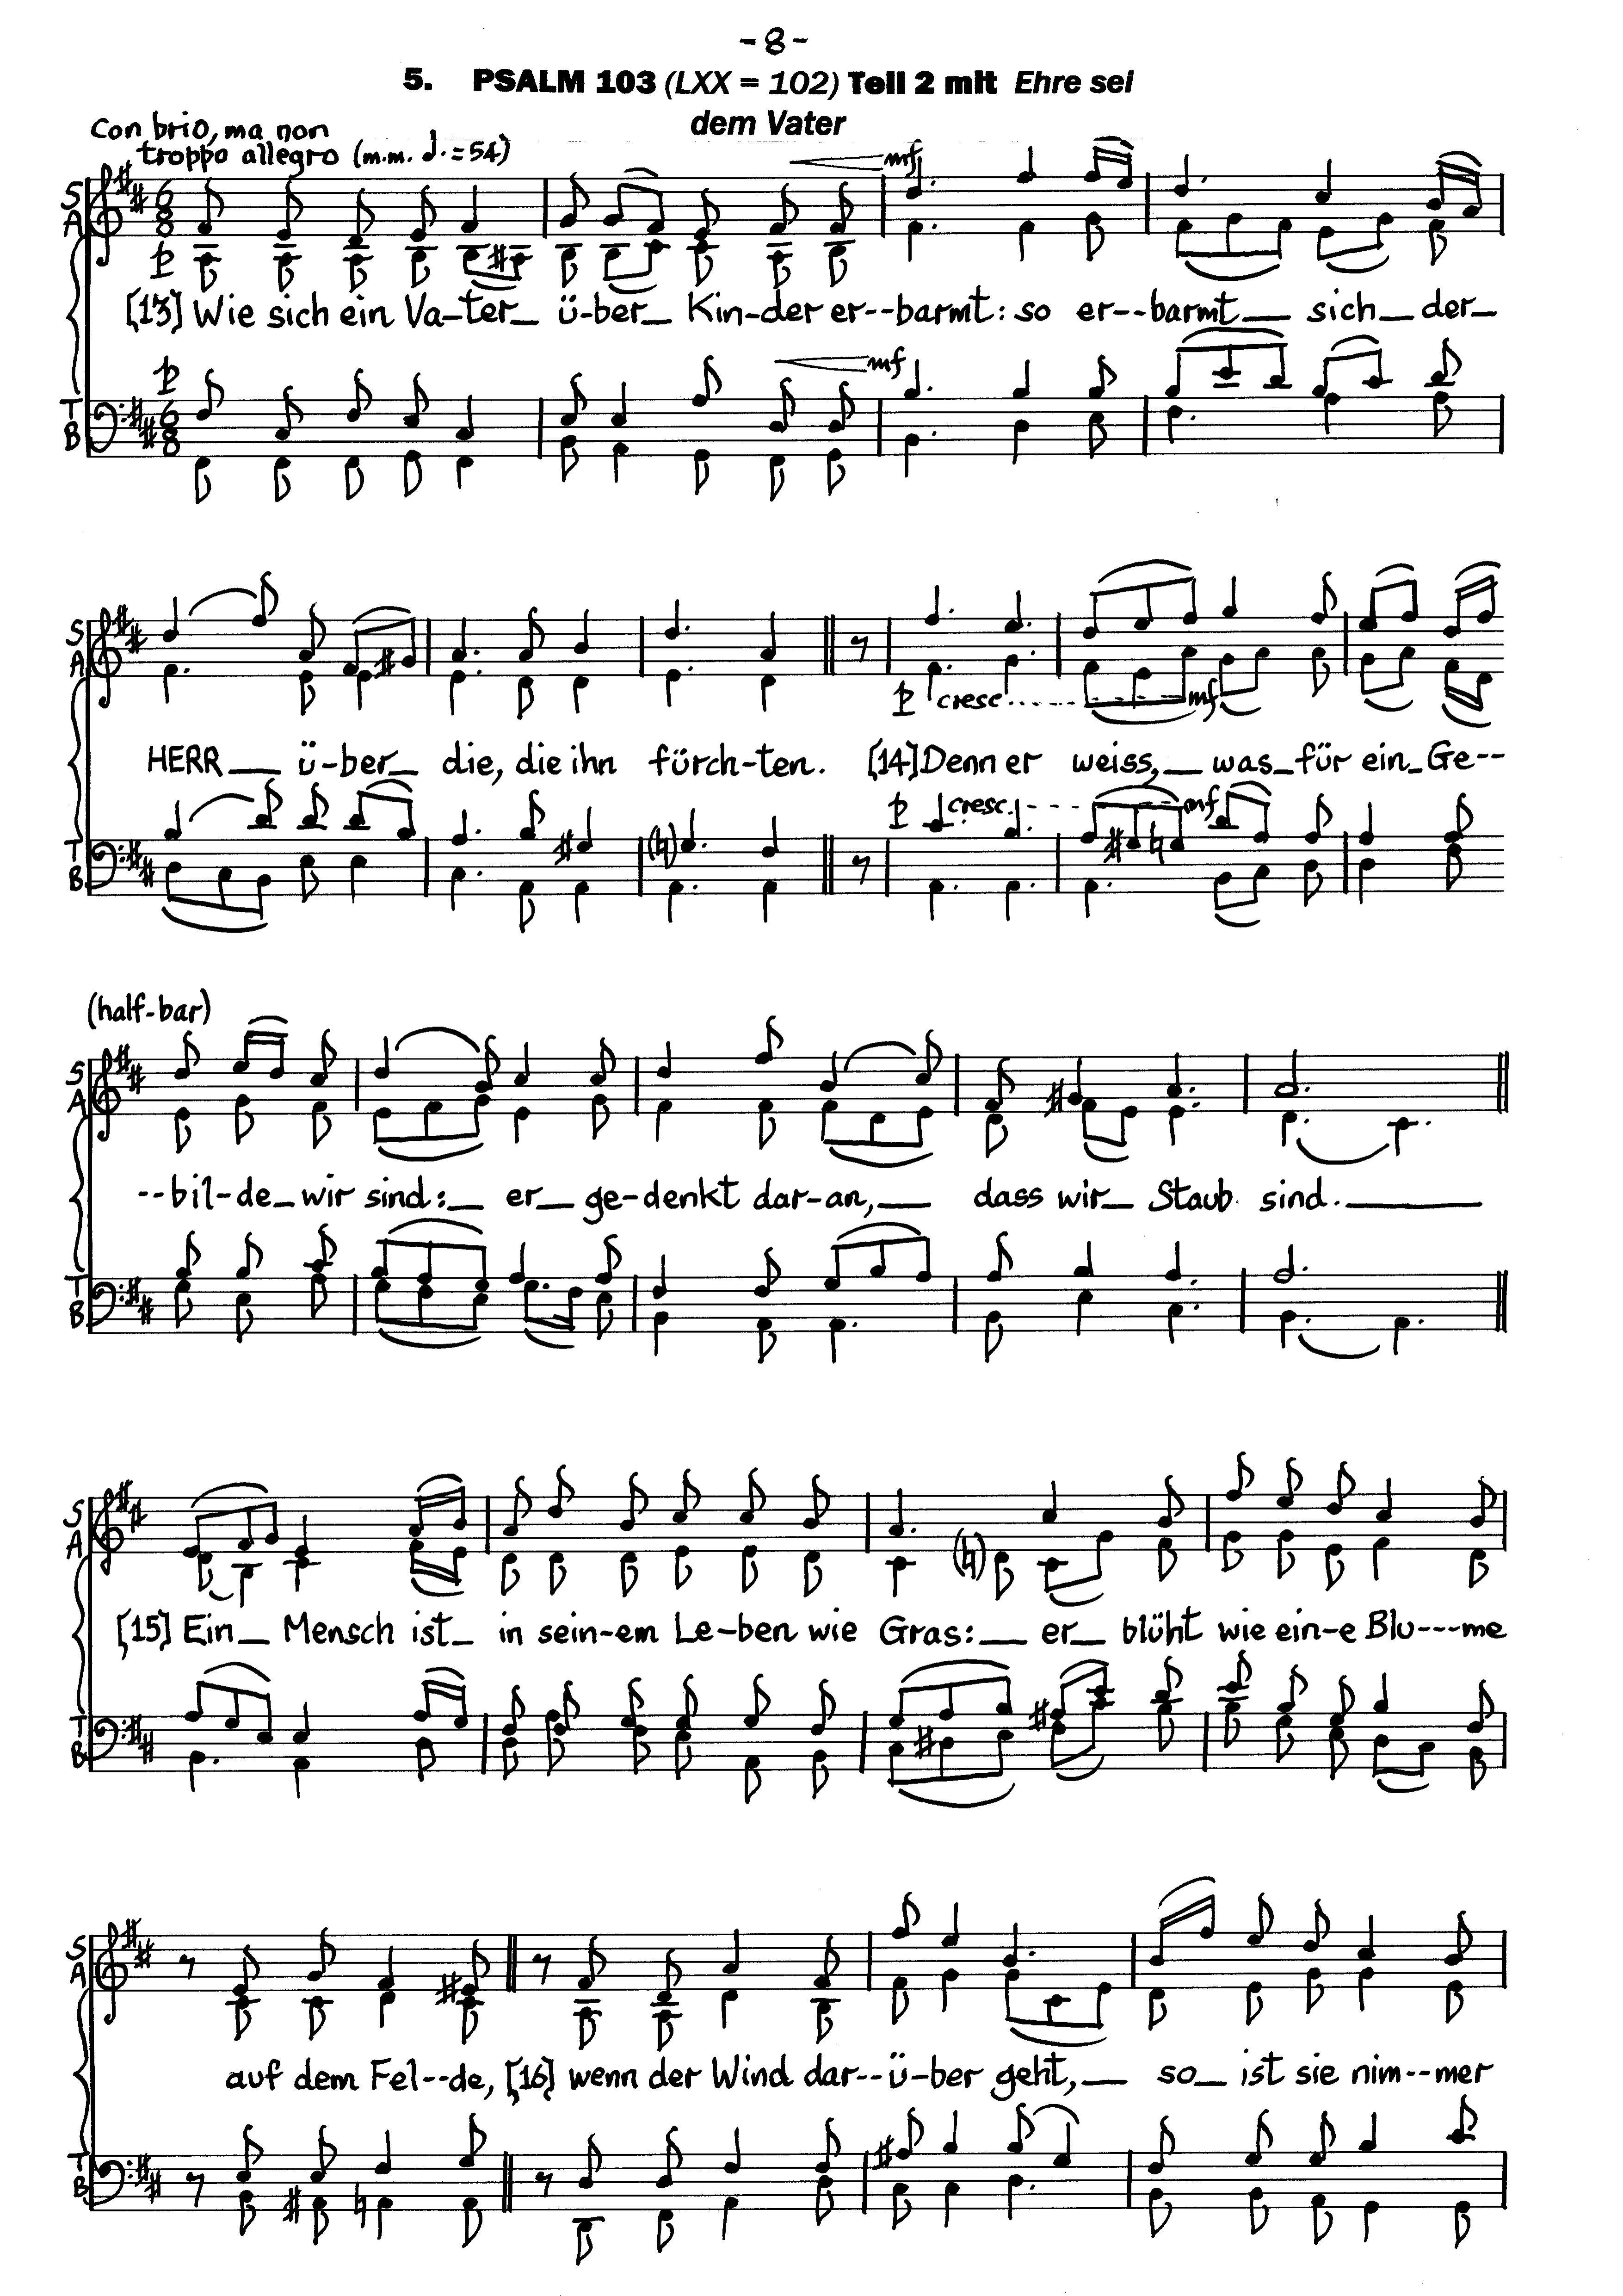 -8-
5. PSALM 103 (LXX = 102) Teil 2 mit Ehre sei
dem Vater
Con brio, ma non
troppo allegro (m.m. ♩. = 54)
mf
S
A
6
8
p
[13] Wie sich ein Va-ter_ ü-ber_ Kin-der er--barmt: so er--barmt_ sich_ der_
p
mf
T
B
6
8
S
A
p cresc. mf
HERR_ ü-ber_ die, die ihn fürch-ten. [14] Denn er weiss,_ was_für ein_Ge--
p cresc. mf
T
B
(half-bar)
S
A
--bil-de_wir sind:_ er_ ge-denkt dar-an,_ dass wir_ Staub sind._
T
B
S
A
[15] Ein_ Mensch ist_ in sein-em Le-ben wie Gras:_ er_ blüht wie ein-e Blu---me
T
B
S
A
auf dem Fel--de, [16] wenn der Wind dar--ü-ber geht,_ so_ ist sie nim--mer
T
B